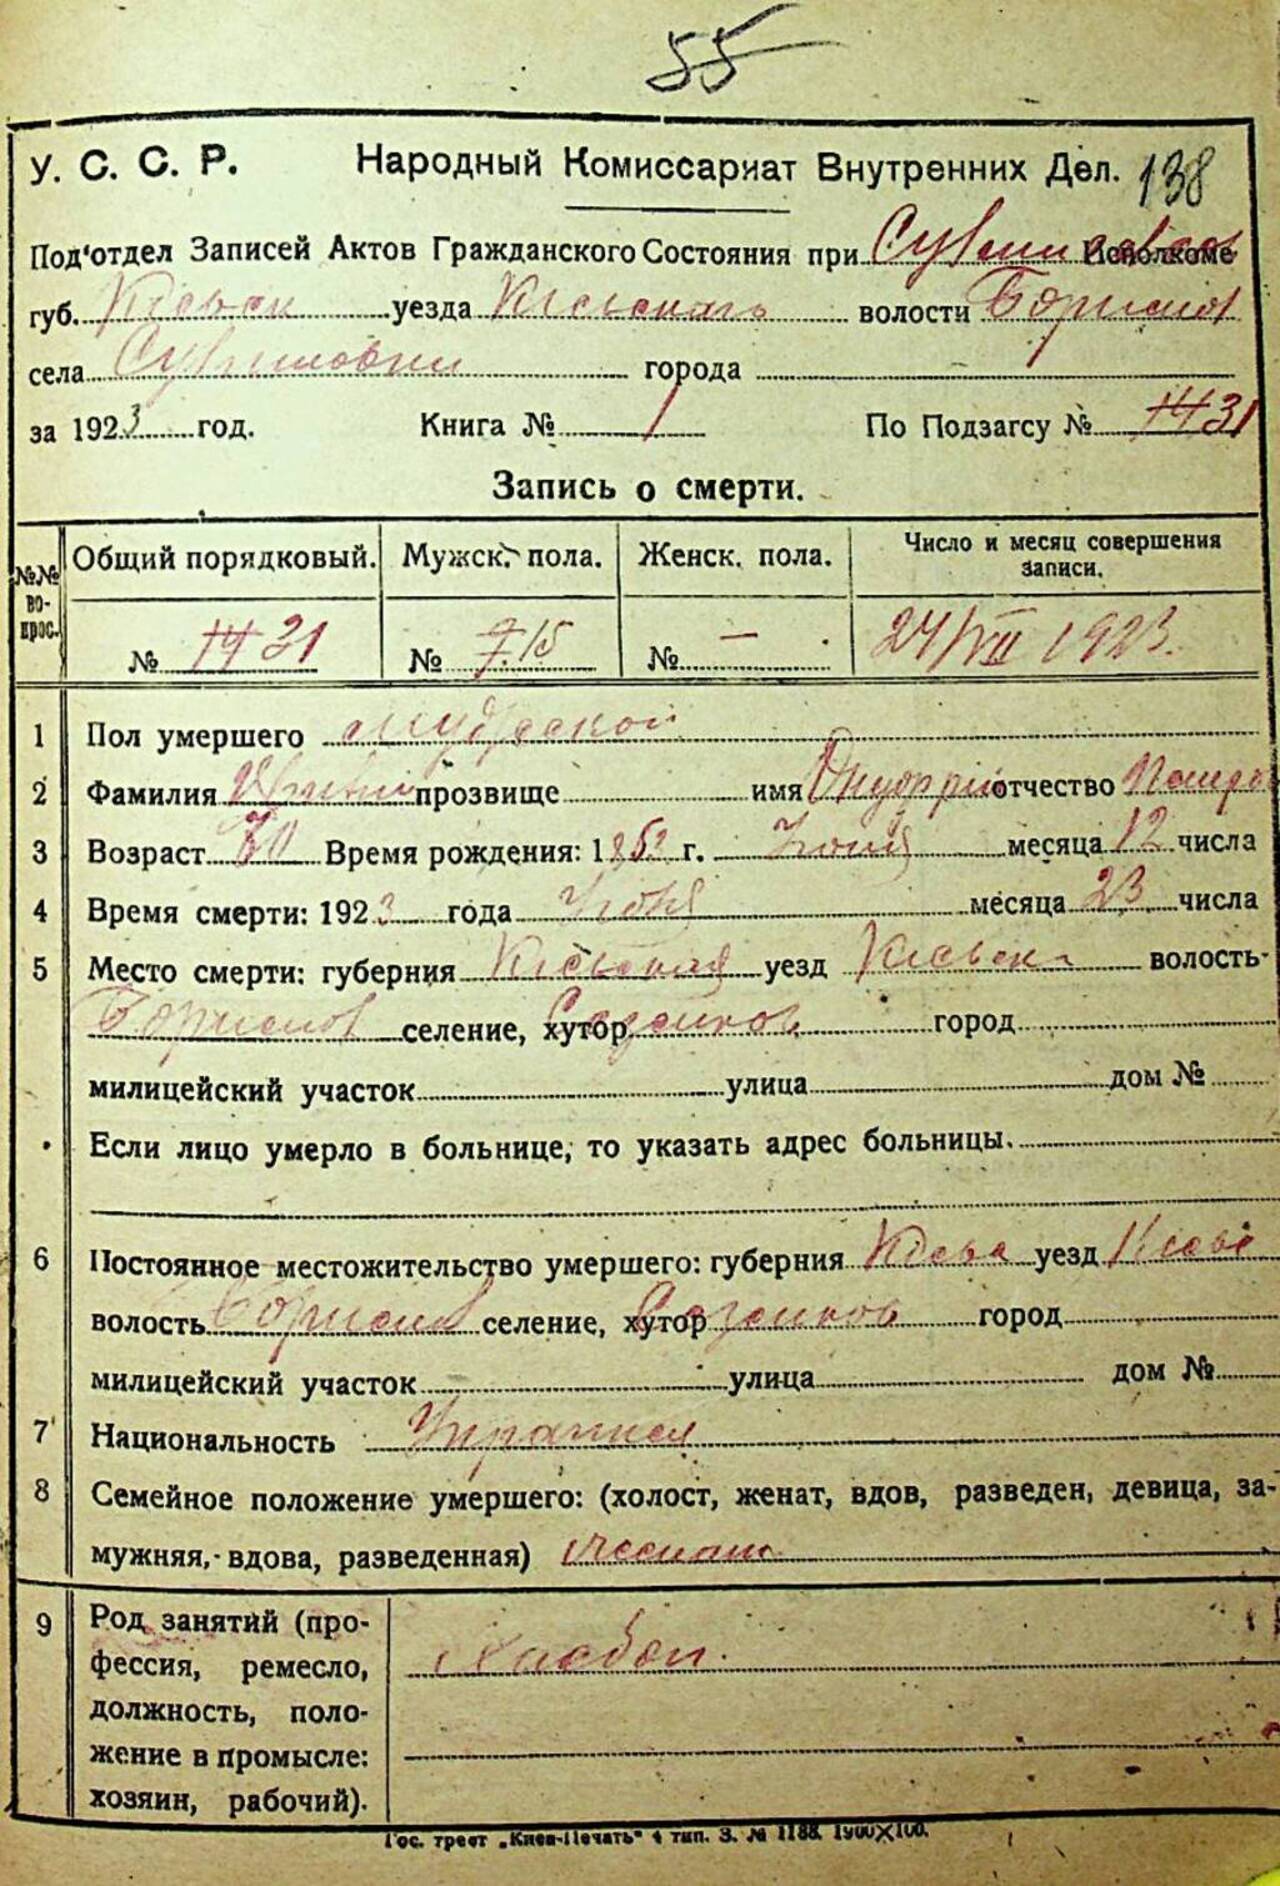 55
У. С. С. Р. Народный Комиссариат Внутренних Дел. 138
Под'отдел Записей Актов Гражданского Состояния при Исполкоме
губ. Кіевск уезда Кіевскаго волости
села города
за 1923 год. Книга № 1 По Подзагсу № 14 31
Запись о смерти.
№№ вопрос. Общий порядковый. Мужск. пола. Женск. пола. Число и месяц совершения записи.
№ 14 31 № 7. 15 № — 24/VII 1923.
1 Пол умершего мужской
2 Фамилия прозвище имя Онуфрий отчество
3 Возраст 70 Время рождения: 1853 г. месяца 12 числа
4 Время смерти: 1923 года месяца 23 числа
5 Место смерти: губерния Кіевская уезд Кіевск волость-
селение, хутор город
милицейский участок улица дом №
Если лицо умерло в больнице, то указать адрес больницы.
6 Постоянное местожительство умершего: губерния Кіева уезд Кіеве
волость селение, хутор город
милицейский участок улица дом №
7 Национальность
8 Семейное положение умершего: (холост, женат, вдов, разведен, девица, за-
мужняя, вдова, разведенная) женат
9 Род занятий (про-
фессия, ремесло,
должность, поло-
жение в промысле:
хозяин, рабочий).
Гос. трест „Киев-Печать" 4 тип. З. № 1188. 1900×100.